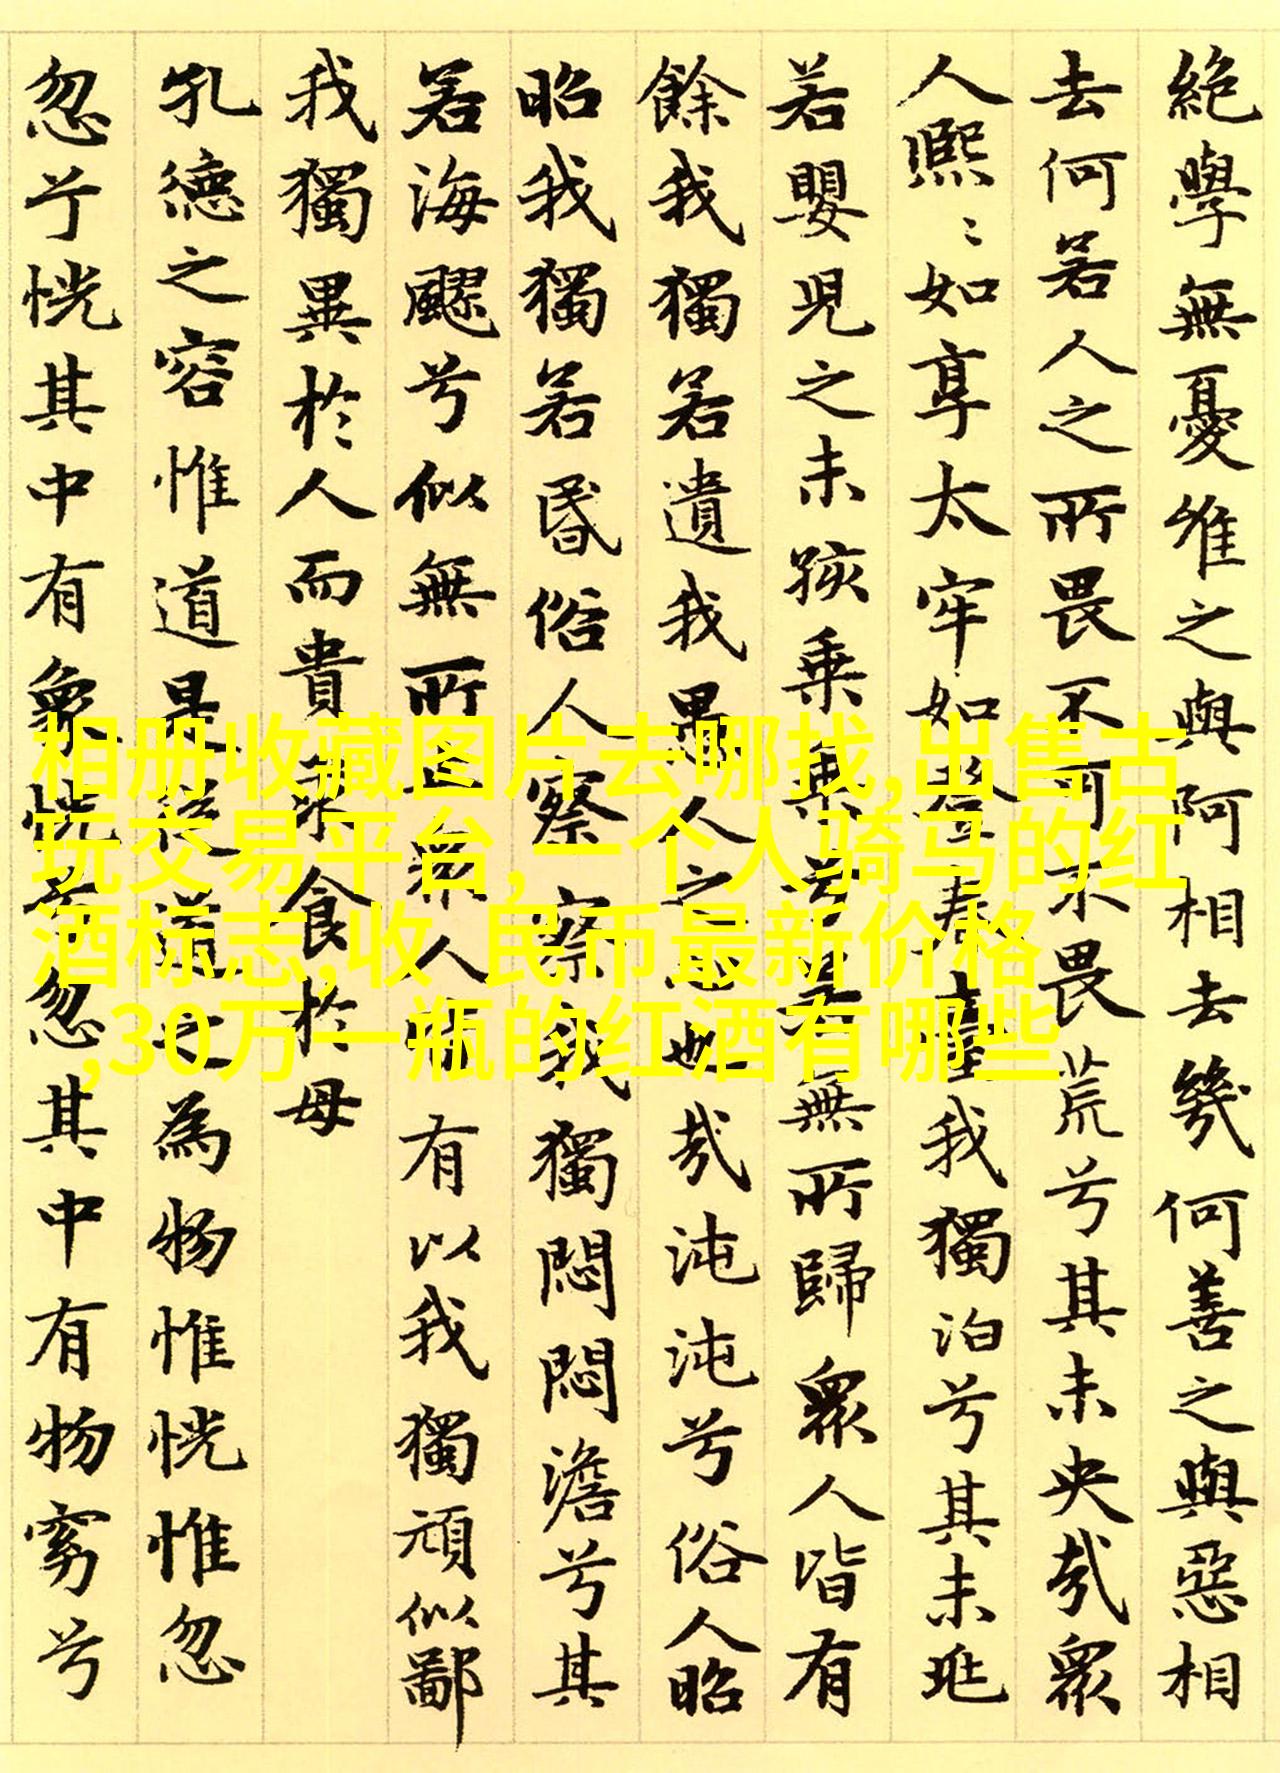 絶學無憂唯之與阿相去幾何善之與惡相
去何若人之所畏不可不畏荒兮其未央哉衆
人熙〻如享太牢如登春臺我獨泊兮其未兆
若嬰兒之未孩乗乗兮若無所歸衆人皆有
餘我獨若遺我愚人之心也哉沌沌兮俗人昭
昭我獨若昏俗人察察我獨悶悶澹兮其
若海飂兮似無所止衆人皆有以我獨頑似鄙
我獨異於人而貴求食於母
孔德之容惟道是從道之為物惟恍惟忽
忽兮恍其中有象恍兮忽其中有物窈兮
相册收藏图片去哪找,出售古
玩交易平台,一个人骑马的红
酒标志,收 民币最新价格
,30万一瓶的红酒有哪些